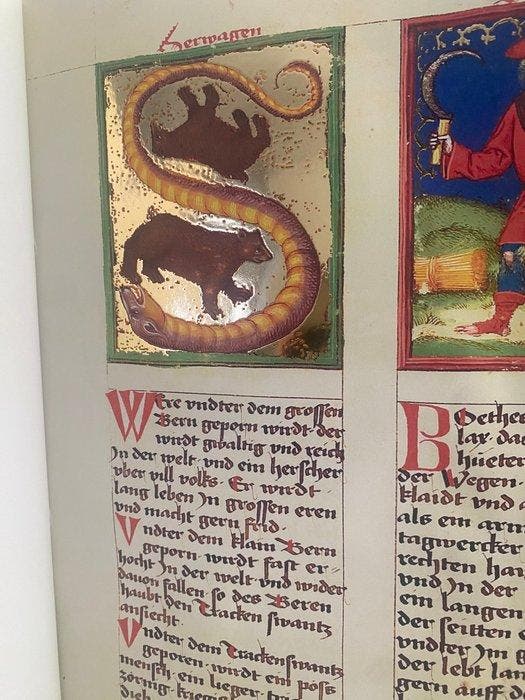 Herwagen
Were vndter dem grossen
Bern geporn wirdt · der
wirdt gwaltig vnd reich
Jn der welt · vnd ein herscher
vber vill volks · Er wirdt
lang leben Jn grossen eren
vnd macht gern frid ·
Vndter dem klain Bern
geporn · wirdt fast er=
hocht Jn der welt vnd wider
dauon fallen · so des Beren
haubt den Tracken swantz
ansicht ·
Vndter dem Trackenswantz
geporen · wirdt ein pöss
mensch ein lieger
zörnig
Boethes
lax · das
hüeter
der Wegen ·
klaidt vnd
als ein arm
tagwercker
rechten han
vnd Jn der
ein langen
der seitten
vndter Jm
der lebt lan
gern auff d